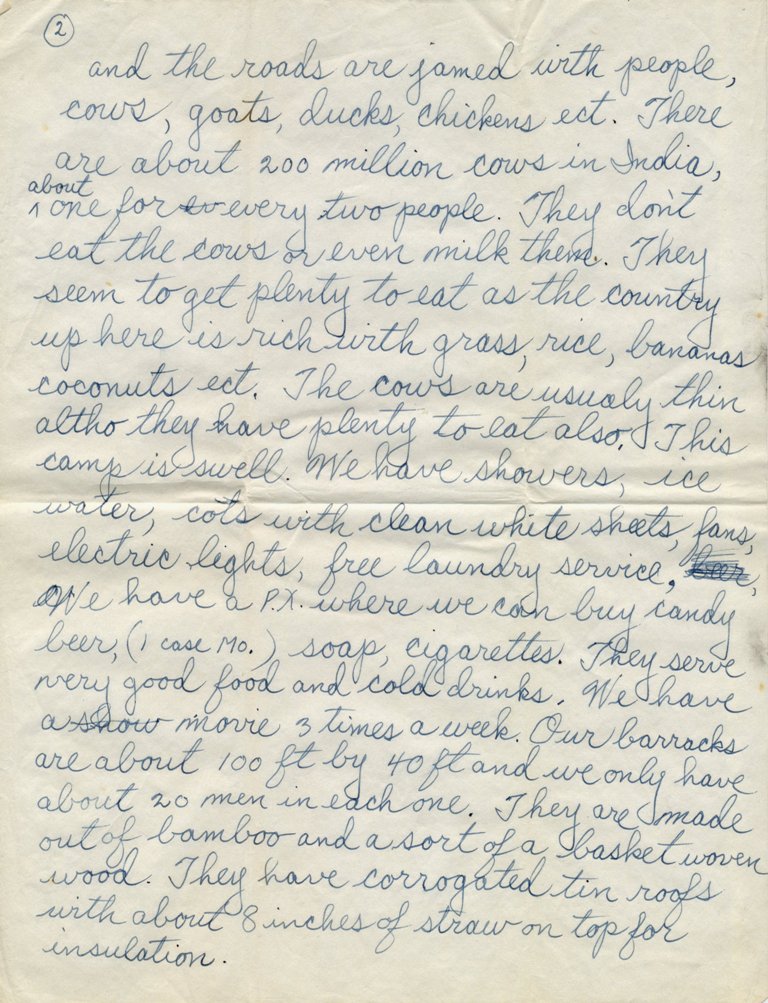 2
and the roads are jamed with people,
cows, goats, ducks, chickens ect. There
are about 200 million cows in India,
about
^ one for ev every two people. They don't
eat the cows or even milk them. They
seem to get plenty to eat as the country
up here is rich with grass, rice, bananas
coconuts ect. The cows are usualy thin
altho they have plenty to eat also. This
camp is swell. We have showers, ice
water, cots with clean white sheets, fans,
electric lights, free laundry service, beer,
We have a P.X. where we can buy candy
beer, (1 case Mo.) soap, cigarettes. They serve
very good food and cold drinks. We have
a show movie 3 times a week. Our barracks
are about 100 ft by 40 ft and we only have
about 20 men in each one. They are made
out of bamboo and a sort of a basket woven
wood. They have corrogated tin roofs
with about 8 inches of straw on top for
insulation.